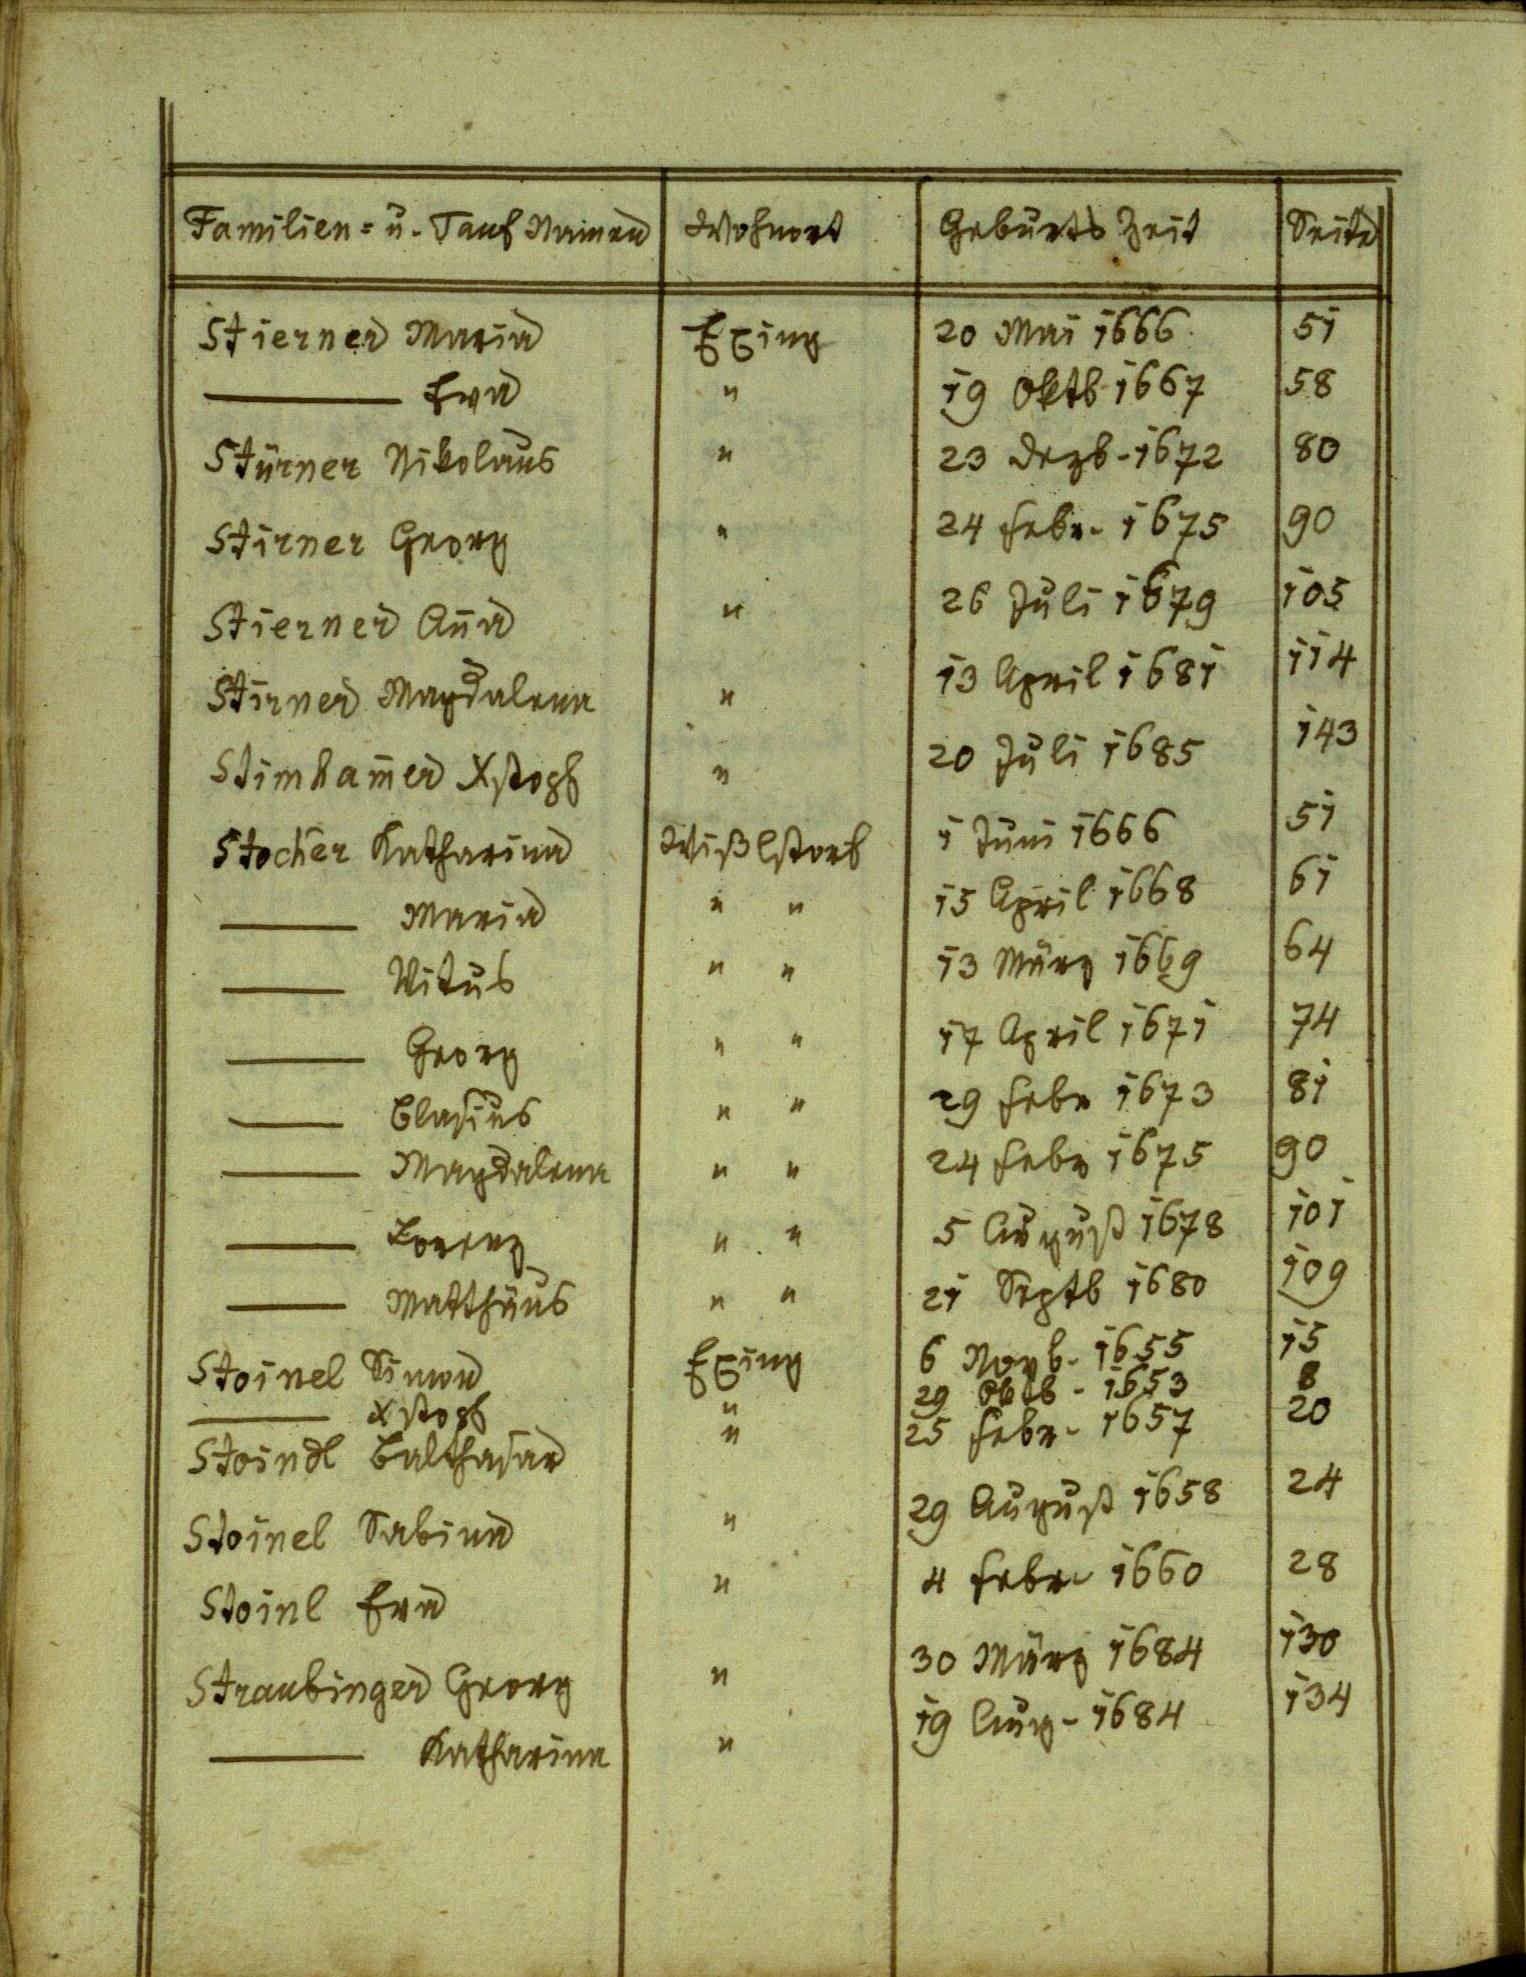 Familien= u. Tauf Namen Wohnort Geburts Zeit Seite
Stierner Maria Exing 20 Mai 1666 51
——— Eva " 19 Oktb 1667 58
Stürner Nikolaus " 23 Dezb. 1672 80
Stirner Georg " 24 Febr. 1675 90
Stierner Aña " 26 Juli 1679 105
Stirner Magdalena " 13 April 1681 114
Stimham̄er Xstoph " 20 Juli 1685 143
Stocher Katharina Wißlstorf 1 Juni 1666 51
——— Maria " " 15 April 1668 61
——— Vitus " " 13 März 1669 64
——— Georg " " 17 April 1671 74
——— Blasius " " 29 Febr 1673 81
——— Magdalena " " 24 Febr 1675 90
——— Lorenz " " 5 August 1678 101
——— Matthäus " " 21 Septb 1680 109
Stoinel Simon Exing 6 Novb. 1655 15
——— Xstoph " 29 Oktb. 1653 8
Stoindl Balthasar " 25 Febr. 1657 20
Stoinel Sabina " 29 August 1658 24
Stoinl Eva " 4 Febr. 1660 28
Straubinger Georg " 30 März 1684 130
——— Katharina " 19 Aug. 1684 134